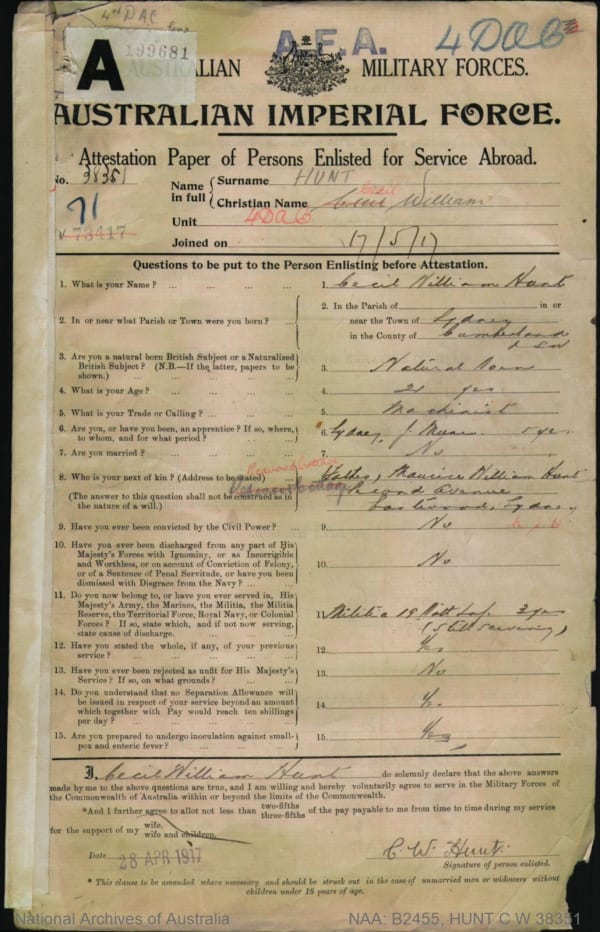 4th DAC
A 199681 A.F.A. 4 DAC
AUSTRALIAN MILITARY FORCES.
AUSTRALIAN IMPERIAL FORCE.
Attestation Paper of Persons Enlisted for Service Abroad.
No. 38351
Name in full { Surname HUNT
Christian Name Cecil William
71
Unit 4 DAC
73417
Joined on 17/5/17
Questions to be put to the Person Enlisting before Attestation.
1. What is your Name? ... 1. Cecil William Hunt
2. In or near what Parish or Town were you born? ... 2. In the Parish of in or
near the Town of Sydney
in the County of Cumberland
NSW
3. Are you a natural born British Subject or a Naturalized
British Subject? (N.B.—If the latter, papers to be
shown.) ... 3. Natural Born
4. What is your Age? ... 4. 21 yrs
5. What is your Trade or Calling? ... 5. Machinist
6. Are you, or have you been, an apprentice? If so, where,
to whom, and for what period? ... 6. Sydney, J 5 yrs
7. Are you married? ... 7. No
8. Who is your next of kin? (Address to be stated) ... 8. Father, Maurice William Hunt
Redwood Cottage
(The answer to this question shall not be construed as in
the nature of a will.) Second Avenue
Eastwood, Sydney
9. Have you ever been convicted by the Civil Power? ... 9. No
10. Have you ever been discharged from any part of His
Majesty's Forces with Ignominy, or as Incorrigible
and Worthless, or on account of Conviction of Felony,
or of a Sentence of Penal Servitude, or have you been
dismissed with Disgrace from the Navy? ... 10. No
11. Do you now belong to, or have you ever served in, His
Majesty's Army, the Marines, the Militia, the Militia
Reserve, the Territorial Force, Royal Navy, or Colonial
Forces? If so, state which, and if not now serving,
state cause of discharge. 11. Militia 19 Batt Inf 3 yrs
(Still serving)
12. Have you stated the whole, if any, of your previous
service? ... 12. Yes
13. Have you ever been rejected as unfit for His Majesty's
Service? If so, on what grounds? 13. No
14. Do you understand that no Separation Allowance will
be issued in respect of your service beyond an amount
which together with Pay would reach ten shillings
per day? ... 14. Yes
15. Are you prepared to undergo inoculation against small-
pox and enteric fever? ... 15. Yes
I, Cecil William Hunt do solemnly declare that the above answers
made by me to the above questions are true, and I am willing and hereby voluntarily agree to serve in the Military Forces of
the Commonwealth of Australia within or beyond the limits of the Commonwealth.
*And I further agree to allot not less than two-fifths three-fifths of the pay payable to me from time to time during my service
for the support of my wife. wife and children.
Date 28 APR 1917 C. W. Hunt.
Signature of person enlisted.
* This clause to be amended where necessary and should be struck out in the case of unmarried men or widowers without
children under 18 years of age.
National Archives of Australia NAA: B2455, HUNT C W 38351